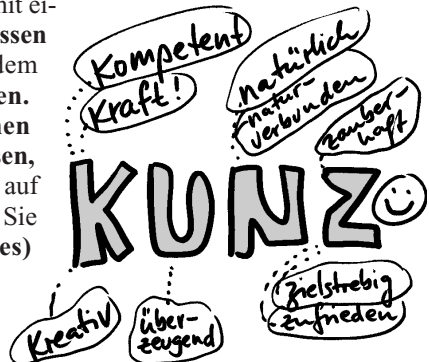 mit ei-
ssen
dem
en.
nen
sen,
auf
Sie
es)
Kompetent
Kraft!
natürlich
natur-
verbunden
zauber-
haft
KUNZ
Kreativ
über-
zeugend
zielstrebig
zufrieden